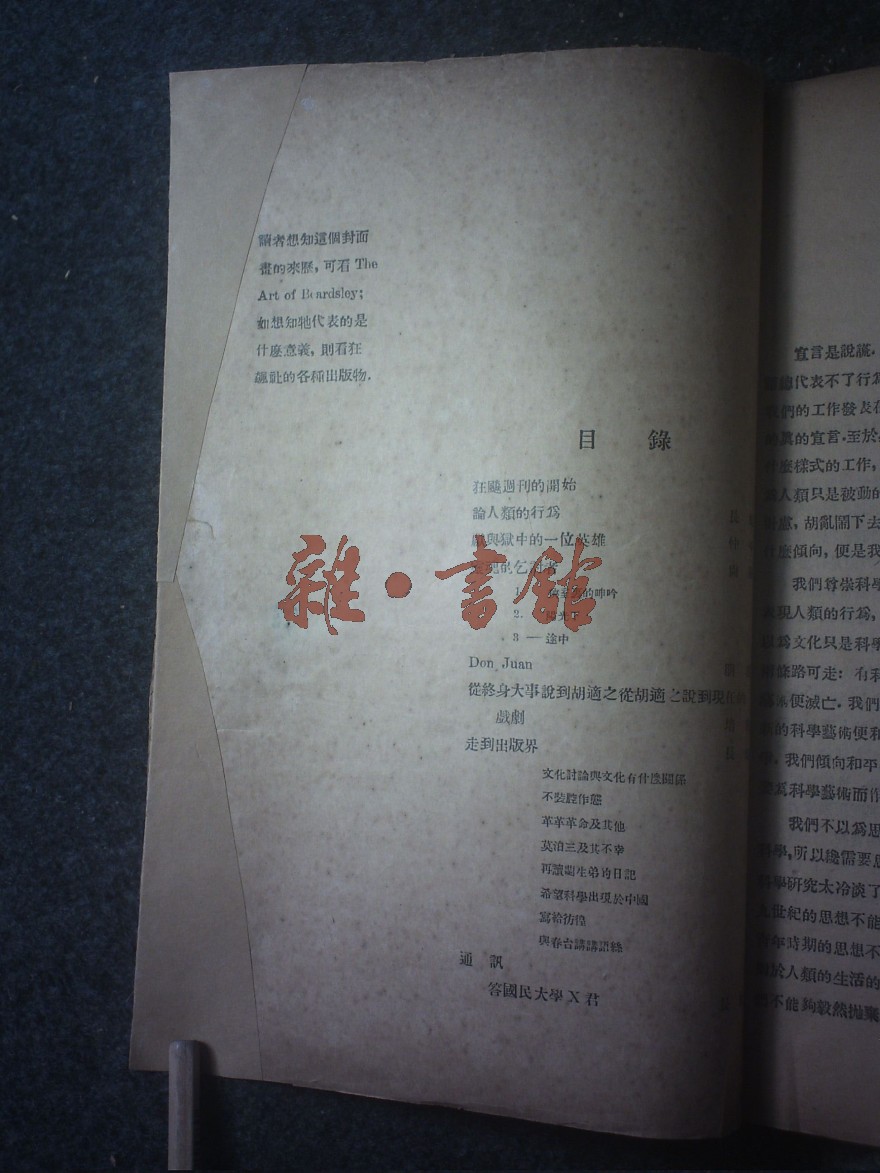 讀者想知這個封面
畫的來歷，可看 The
Art of Beardsley；
如想知牠代表的是
什麽意義，則看狂
飈社的各種出版物.
目錄
狂飈週刊的開始
論人類的行爲
戲與獄中的一位英雄
的乞
的呻吟
2.
3 — 途中
Don Juan
從終身大事說到胡適之從胡適之說到現在的
戲劇
走到出版界
文化討論與文化有什麽關係
不裝腔作態
革革革命及其他
莫泊三及其不幸
再讀蘭生弟的日記
希望科學出現於中國
寫給彷徨
與春台講講語絲
通訊
答國民大學 X 君
雜·書館
宣言是說謊.
代表不了行爲
們的工作發表在
真的宣言.至於
麽樣式的工作,
人類只是被動的
慮, 胡亂鬧下去
麽傾向, 便是我
我們尊崇科學
現人類的行爲,
爲文化只是科學
條路可走: 有科
便滅亡. 我們
的科學藝術便和
我們傾向和平
爲科學藝術而作
我們不以爲思
學,所以纔需要思
學研究太冷淡了
世紀的思想不能
年時期的思想不
於人類的生活的
不能夠毅然拋棄